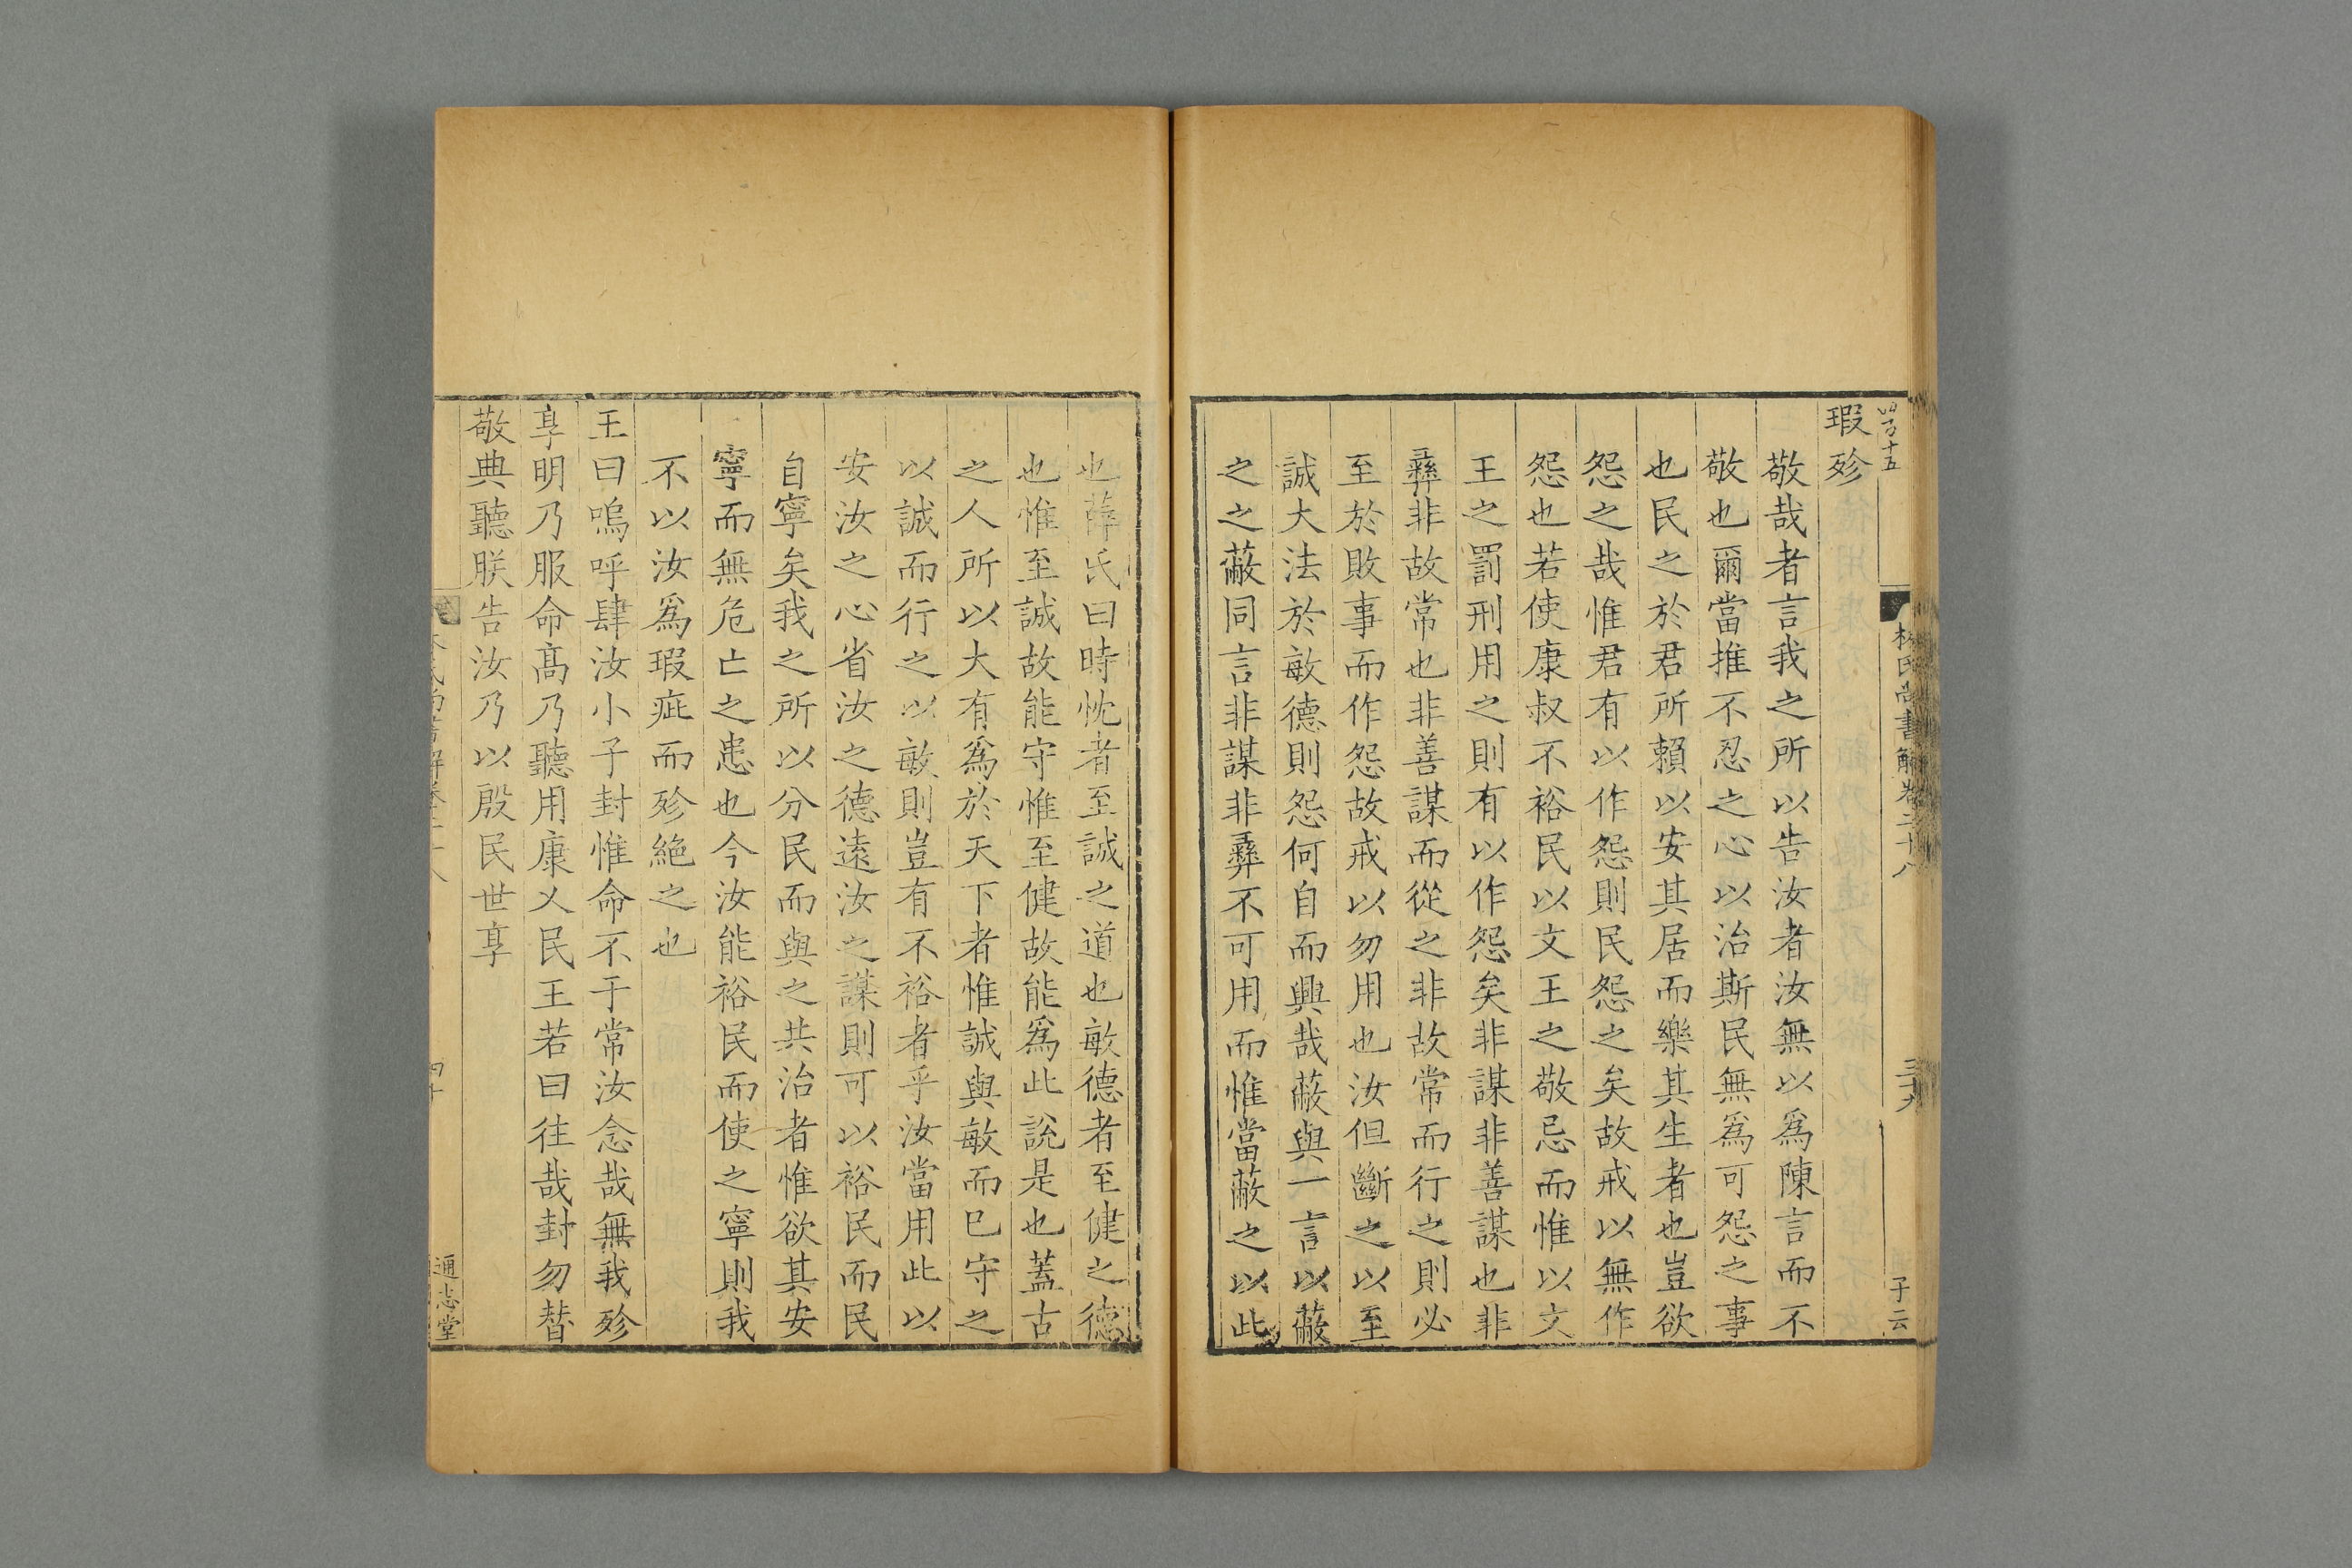 林氏尚書解卷二十八
三十九
子云
瑕殄
敬哉者言我之所以告汝者汝無以爲陳言而不
敬也爾當推不忍之心以治斯民無爲可怨之事
也民之於君所賴以安其居而樂其生者也豈欲
怨之哉惟君有以作怨則民怨之矣故戒以無作
怨也若使康叔不裕民以文王之敬忌而惟以文
王之罰刑用之則有以作怨矣非謀非善謀也非
彞非故常也非善謀而從之非故常而行之則必
至於敗事而作怨故戒以勿用也汝但斷之以至
誠大法於敏德則怨何自而興哉蔽與一言以蔽
之之蔽同言非謀非彞不可用而惟當蔽之以此
也薛氏曰時忱者至誠之道也敏德者至健之德
也惟至誠故能守惟至健故能爲此說是也蓋古
之人所以大有爲於天下者惟誠與敏而已守之
以誠而行之以敏則豈有不裕者乎汝當用此以
安汝之心省汝之德遠汝之謀則可以裕民而民
自寧矣我之所以分民而與之共治者惟欲其安
寧而無危亡之患也今汝能裕民而使之寧則我
不以汝爲瑕疵而殄絕之也
王曰嗚呼肆汝小子封惟命不于常汝念哉無我殄
享明乃服命高乃聽用康乂民王若曰往哉封勿替
敬典聽朕告汝乃以殷民世享
四十
通志堂